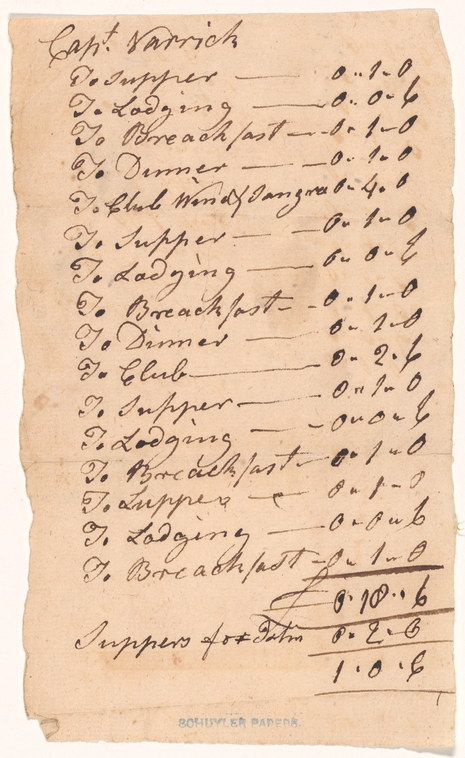 Capt. Varrick
To Supper — 0 .. 1 - 0
To Lodging — 0 .. 0 .. 6
To Breackfast — 0 - 1 - 0
To Dinner — 0 - 1 - 0
To Club Wine & Sangra 0 - 4 - 0
To Supper — 0 - 1 - 0
To Lodging — 0 - 0 - 6
To Breackfast — 0 - 1 - 0
To Dinner — 0 - 1 - 0
To Club — 0 - 2 - 6
To Supper — 0 - 1 - 0
To Lodging — 0 - 0 - 6
To Breackfast — 0 - 1 - 0
To Supper — 0 - 1 - 0
To Lodging — 0 - 0 - 6
To Breackfast — 0 - 1 - 0
£ 0 - 18 - 6
Suppers for 0 - 2 - 0
1 - 0 - 6
SCHUYLER PAPERS